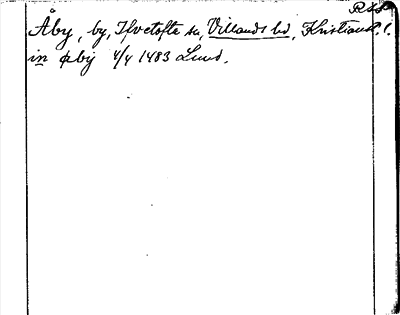 Åby, by, Ifvetofta sn, Villands hd, Kristianst. l.
in øby 4/4 1483 Lund.